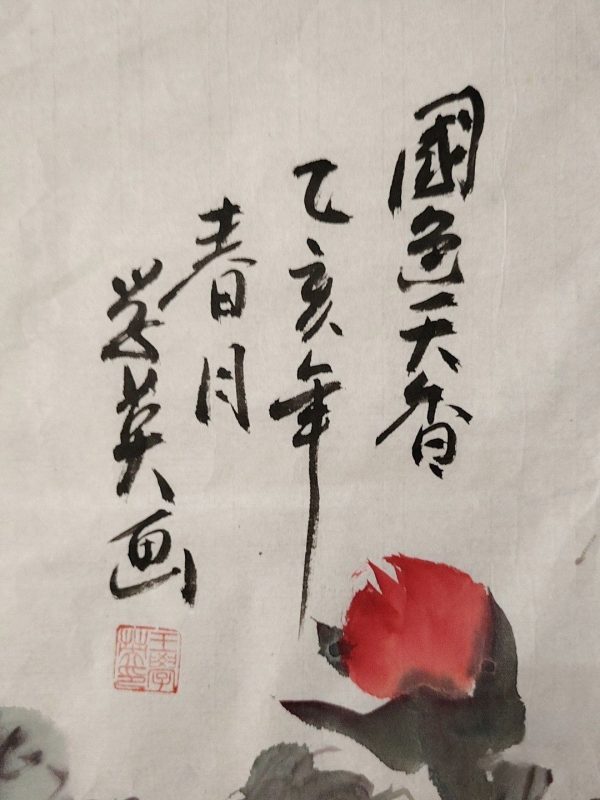 國色天香
乙亥年
春月
学英画
王學英印